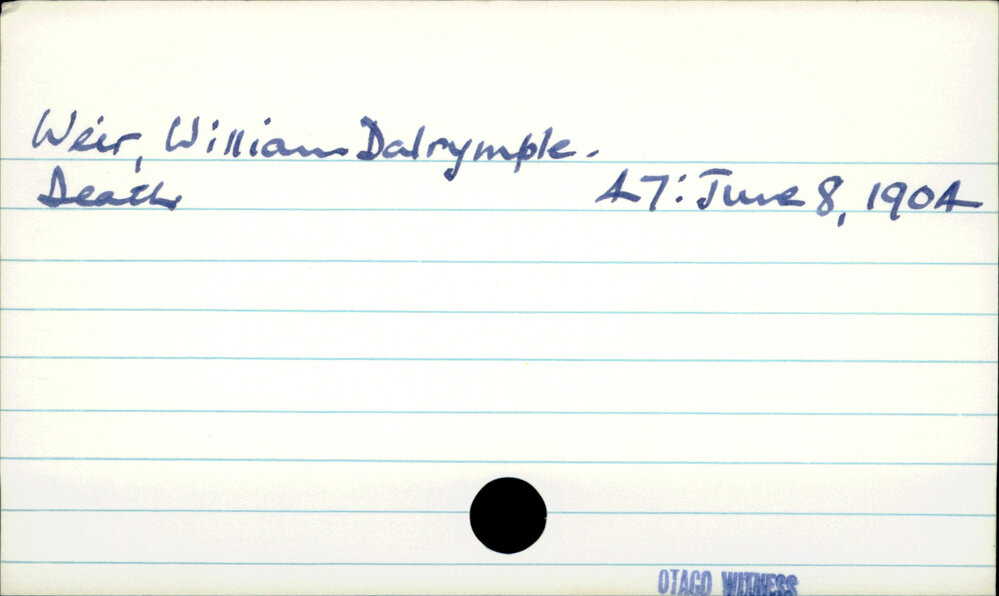 Weir, William Dalrymple.
Death 47: June 8, 1904
OTAGO WITNESS